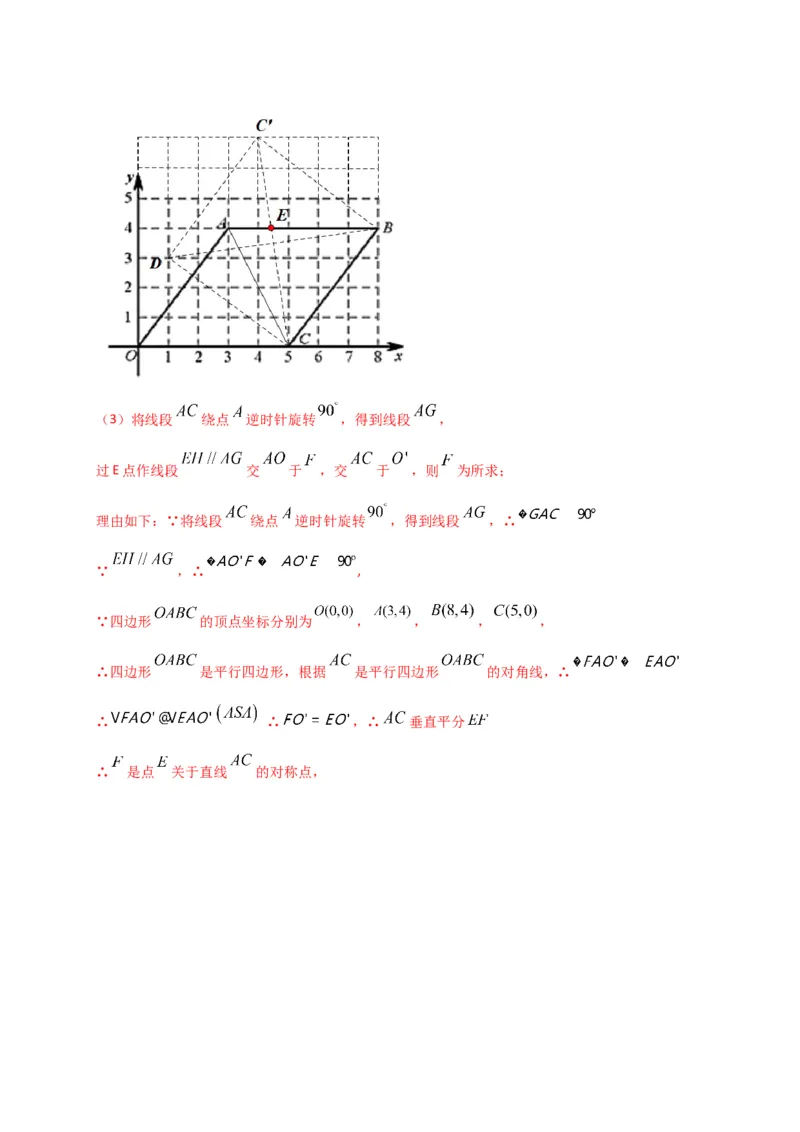 C'
y
5
A E
4 B
3 D
2
1
O 1 2 3 4 5 6 7 8 x
C
（3）将线段 AC 绕点 A 逆时针旋转 90°，得到线段 AG，
过 E 点作线段 EH // AG 交 AO 于 F，交 AC 于 O'，则 F 为所求；
理由如下：∵将线段 AC 绕点 A 逆时针旋转 90°，得到线段 AG，∴�GAC 90°
∵ EH // AG，∴�AO'F � AO'E 90°，
∵四边形 OABC 的顶点坐标分别为 O(0,0)，A(3,4)，B(8,4)，C(5,0)，
∴四边形 OABC 是平行四边形，根据 AC 是平行四边形 OABC 的对角线，∴�FAO'� EAO'
∴VFAO'@VEAO'(ASA) ∴FO' = EO'，∴ AC 垂直平分 EF
∴ F 是点 E 关于直线 AC 的对称点，